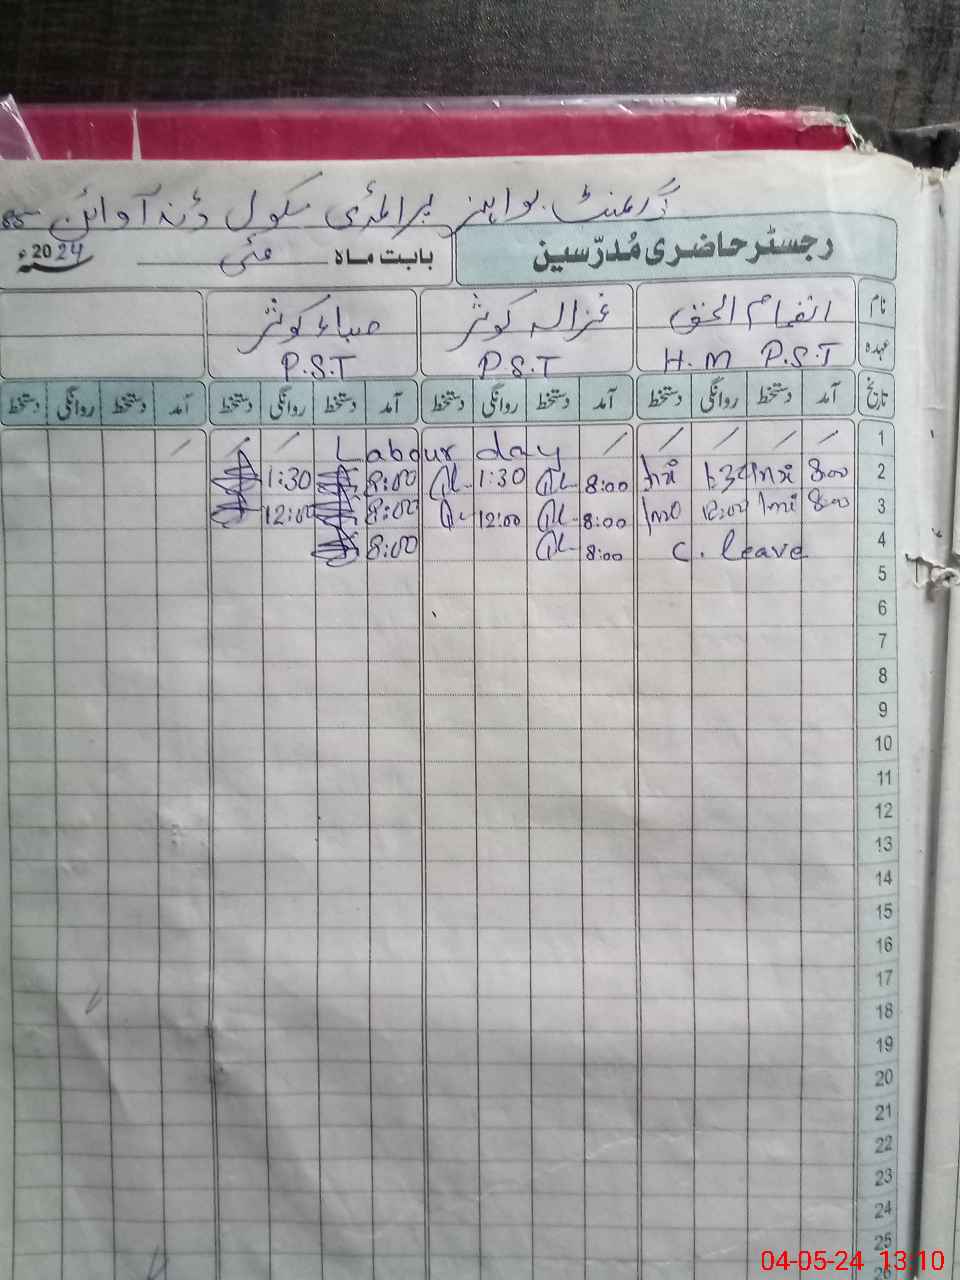 گورنمنٹ بوائز پرائمری سکول ڈنہ آوائن
رجسٹر حاضری مُدرّسین بابت ماہ مئی 2024ء
نام غزالہ کوثر صباء کوثر
عہدہ H.M P.S.T P.S.T P.S.T
تاریخ آمد دستخط روانگی دستخط آمد دستخط روانگی دستخط آمد دستخط روانگی دستخط آمد دستخط روانگی دستخط
1 Labour day
2 8:00 1:30 8:00 1:30 8:00 1:30
3 8:00 12:00 8:00 12:00 8:00 12:00
4 C. leave 8:00 8:00
5
6
7
8
9
10
11
12
13
14
15
16
17
18
19
20
21
22
23
24
25
26
04-05-24 13:10